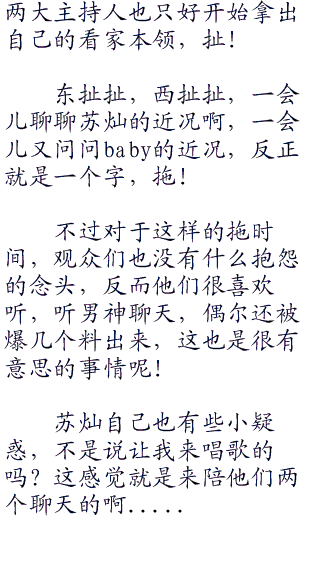 两大主持人也只好开始拿出
自己的看家本领，扯！
东扯扯，西扯扯，一会
儿聊聊苏灿的近况啊，一会
儿又问问baby的近况，反正
就是一个字，拖！
不过对于这样的拖时
间，观众们也没有什么抱怨
的念头，反而他们很喜欢
听，听男神聊天，偶尔还被
爆几个料出来，这也是很有
意思的事情呢！
苏灿自己也有些小疑
惑，不是说让我来唱歌的
吗？这感觉就是来陪他们两
个聊天的啊.....